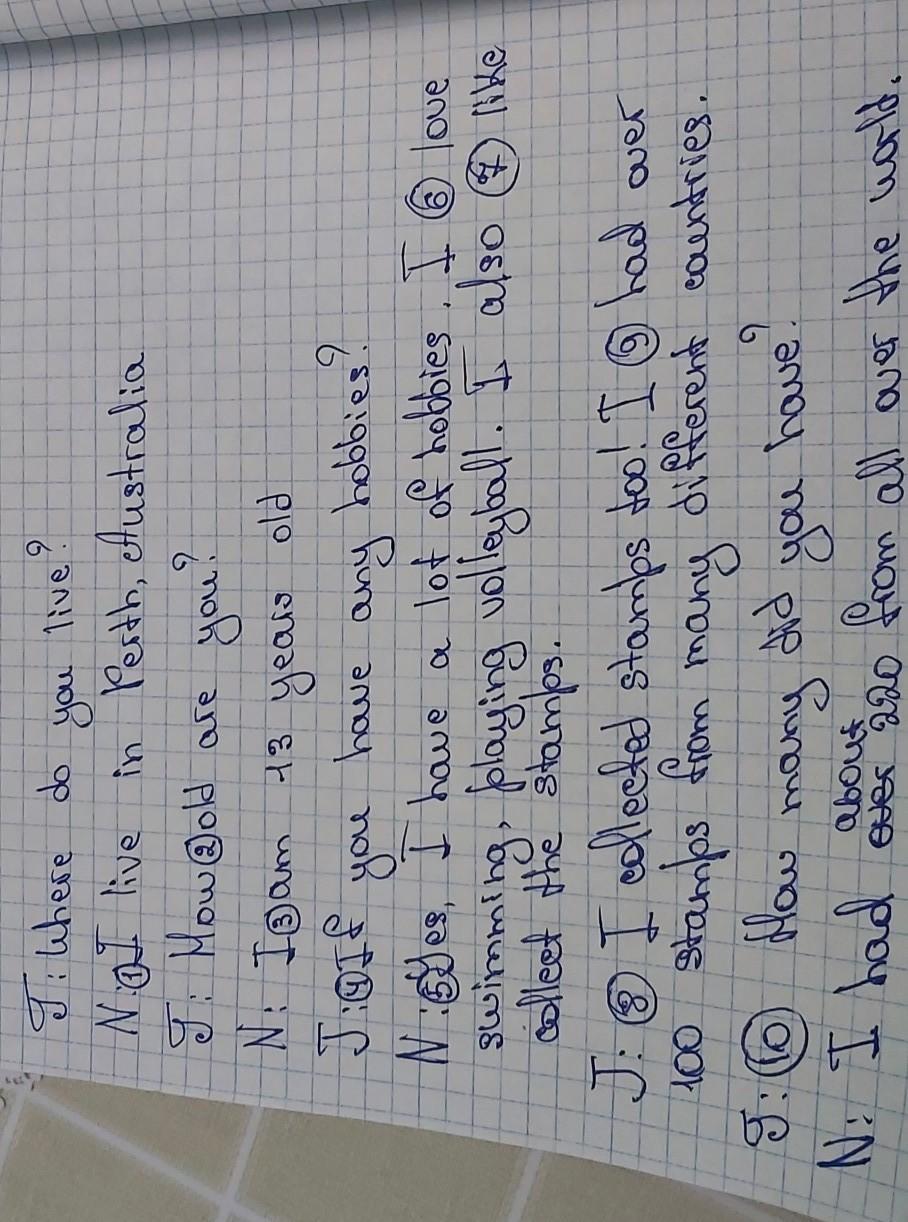 J: Where do you live?
N: ① I live in Perth, Australia
J: How ② old are you?
N: I ③ am 13 years old
J: ④ If you have any hobbies?
N: ⑤ Yes, I have a lot of hobbies. I ⑥ love
swimming, playing volleyball. I also ⑦ like
collect the stamps.
J: ⑧ I collected stamps too! I ⑨ had over
100 stamps from many different countries.
J: ⑩ How many did you have?
about
N: I had over 220 from all over the world.